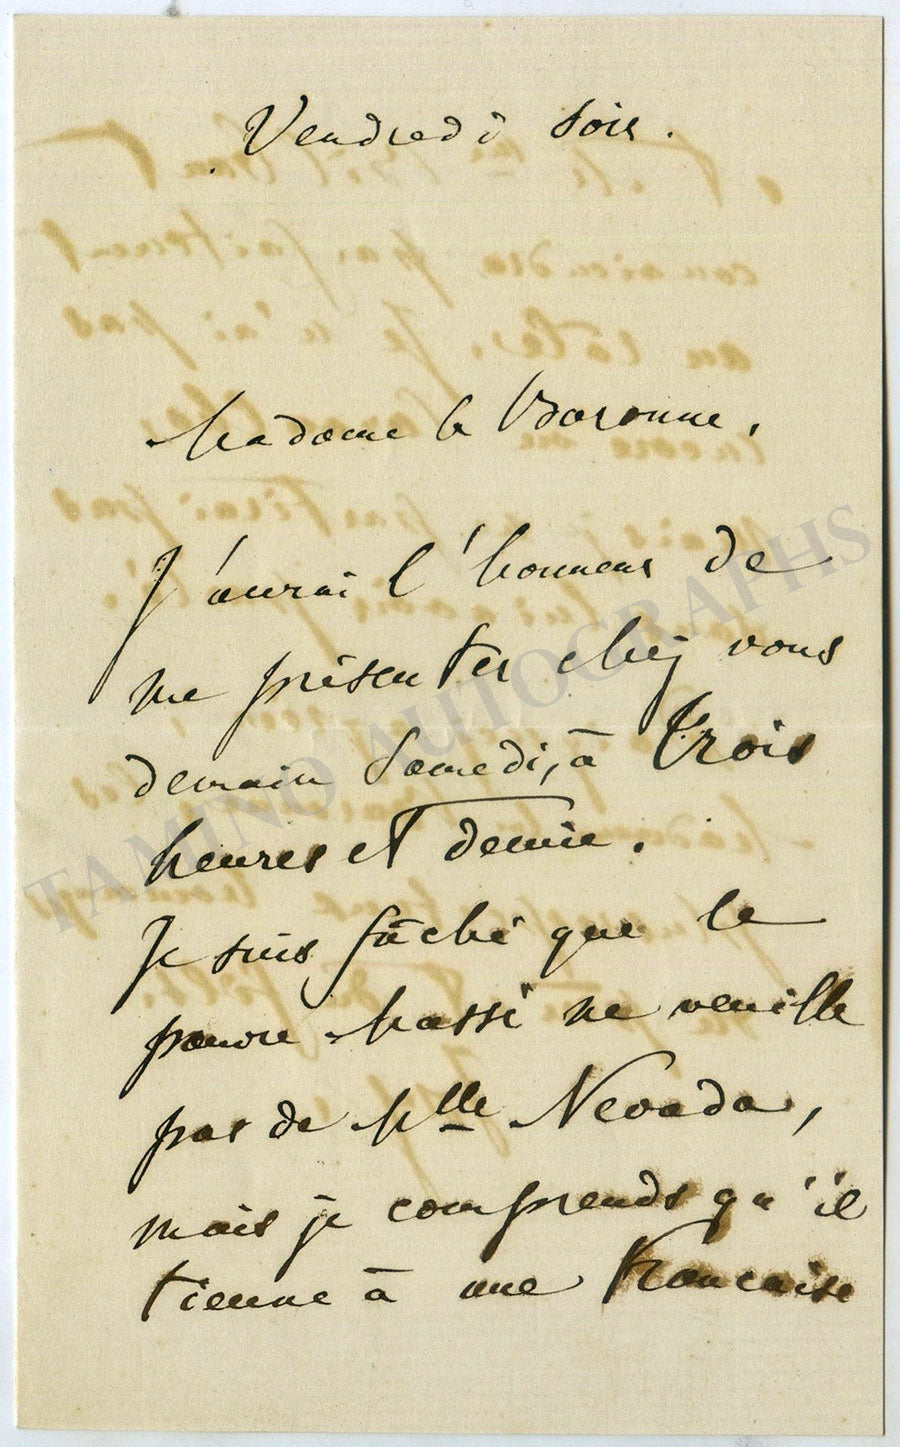 Vendredi soir.
Madame la Baronne,
J'aurai l'honneur de
me présenter chez vous
demain Samedi, à trois
heures et demie.
Je suis fâché que le
pauvre Massé ne veuille
pas de Mlle Nevada,
mais je comprends qu'il
tienne à une Française
TAMINO AUTOGRAPHS